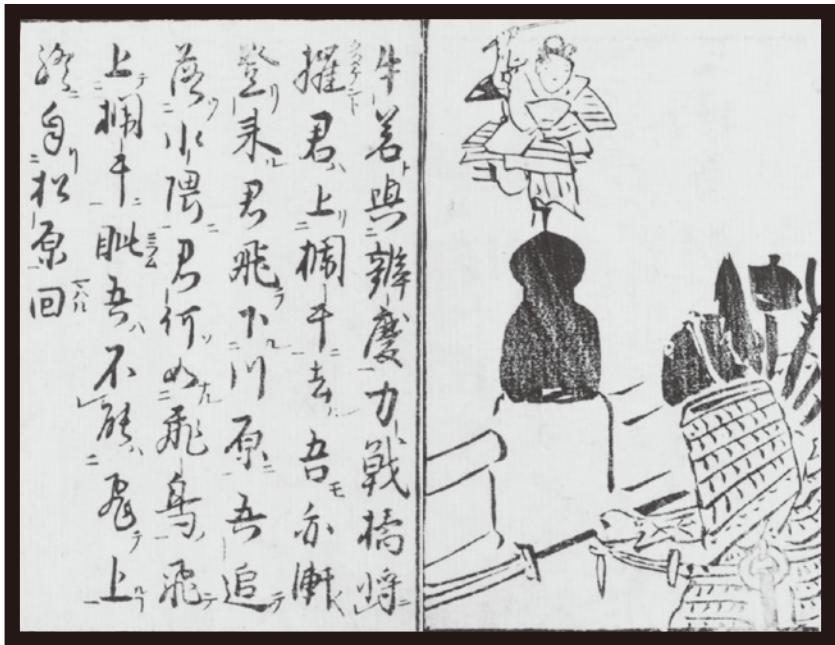 牛若與辨慶力戰橋將
摧君上欄干去吾亦漸
登来君飛下川原吾追
落水隈君何如飛鳥飛
上欄干眦吾不能飛上
終自松原回